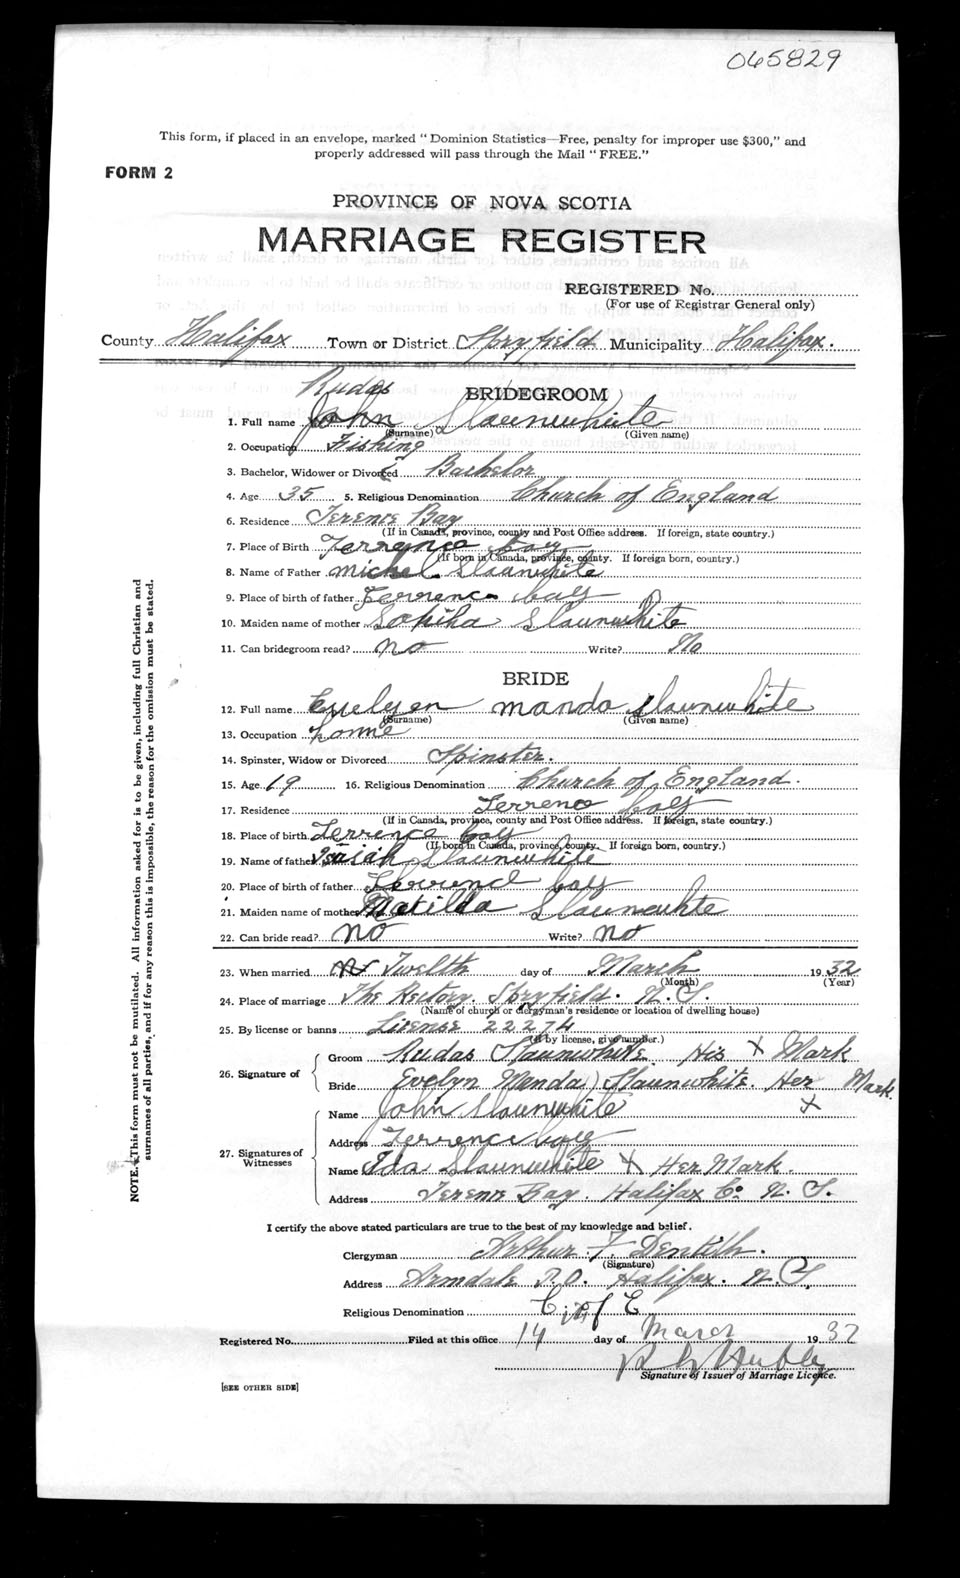 065829
This form, if placed in an envelope, marked "Dominion Statistics—Free, penalty for improper use $300," and
properly addressed will pass through the Mail "FREE."
FORM 2
PROVINCE OF NOVA SCOTIA
MARRIAGE REGISTER
REGISTERED No.
(For use of Registrar General only)
County Halifax Town or District Spryfield Municipality Halifax.
BRIDEGROOM
Rudas
1. Full name John Slaunwhite
(Surname) (Given name)
2. Occupation Fishing
3. Bachelor, Widower or Divorced Bachelor
4. Age 35 5. Religious Denomination Church of England
6. Residence Terence Bay
(If in Canada, province, county and Post Office address. If foreign, state country.)
7. Place of Birth Terrence bay
(If born in Canada, province, county. If foreign born, country.)
8. Name of Father michel Slaunwhite
9. Place of birth of father Terrence bay
10. Maiden name of mother Sophiha Slaunwhite
11. Can bridegroom read? no Write? No
BRIDE
12. Full name Evelyen manda Slaunwhite
(Surname) (Given name)
13. Occupation home
14. Spinster, Widow or Divorced Spinster.
15. Age 19 16. Religious Denomination Church of England.
17. Residence Terrence bay
(If in Canada, province, county and Post Office address. If foreign, state country.)
18. Place of birth Terrence bay
(If born in Canada, province, county. If foreign born, country.)
19. Name of father Isaiah Slaunwhite
20. Place of birth of father Terrence bay
21. Maiden name of mother Matilda Slaunwhte
22. Can bride read? no Write? no
23. When married Twelth day of March 1932
(Month) (Year)
24. Place of marriage The Rectory. Spryfield. N. S.
(Name of church or clergyman's residence or location of dwelling house)
25. By license or banns License 22274
(If by license, give number.)
26. Signature of Groom Rudas Slaunwhite His X Mark
Bride Evelyn Manda Slaunwhite. Her Mark.
X
27. Signatures of Witnesses Name John Slaunwhite
Address Terrence bay
Name Ida Slaunwhite X Her Mark.
Address Terence Bay. Halifax Co. N. S.
I certify the above stated particulars are true to the best of my knowledge and belief.
Clergyman Arthur F. Dentith.
(Signature)
Address Armdale P.O. Halifax. N. S.
Religious Denomination C. of E
Registered No. Filed at this office 14 day of March 1932
Signature of Issuer of Marriage Licence.
[SEE OTHER SIDE]
NOTE.—This form must not be mutilated. All information asked for is to be given, including full Christian and
surnames of all parties, and if for any reason this is impossible, the reason for the omission must be stated.